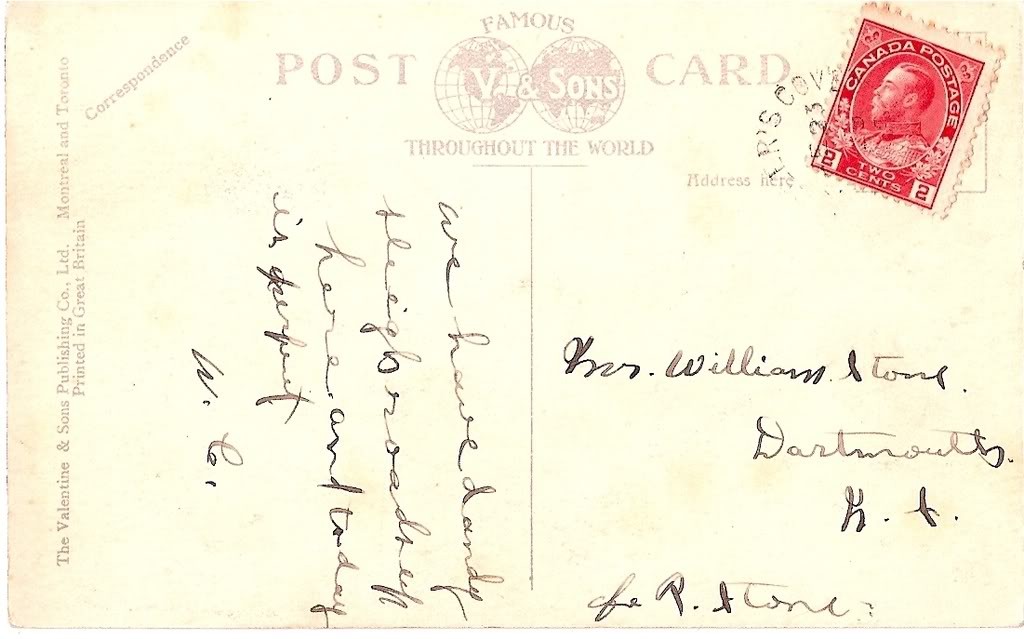 FAMOUS
POST CARD
V. & SONS
THROUGHOUT THE WORLD
Correspondence
Address here
The Valentine & Sons Publishing Co., Ltd. Montreal and Toronto
Printed in Great Britain
CANADA POSTAGE
2 TWO CENTS 2
ER'S COV
23
we have dandy
sleigh roads up
here and today
is perfect
W. C.
Mrs. William Stone.
Dartmouth.
N. S.
c/o R. Stone.